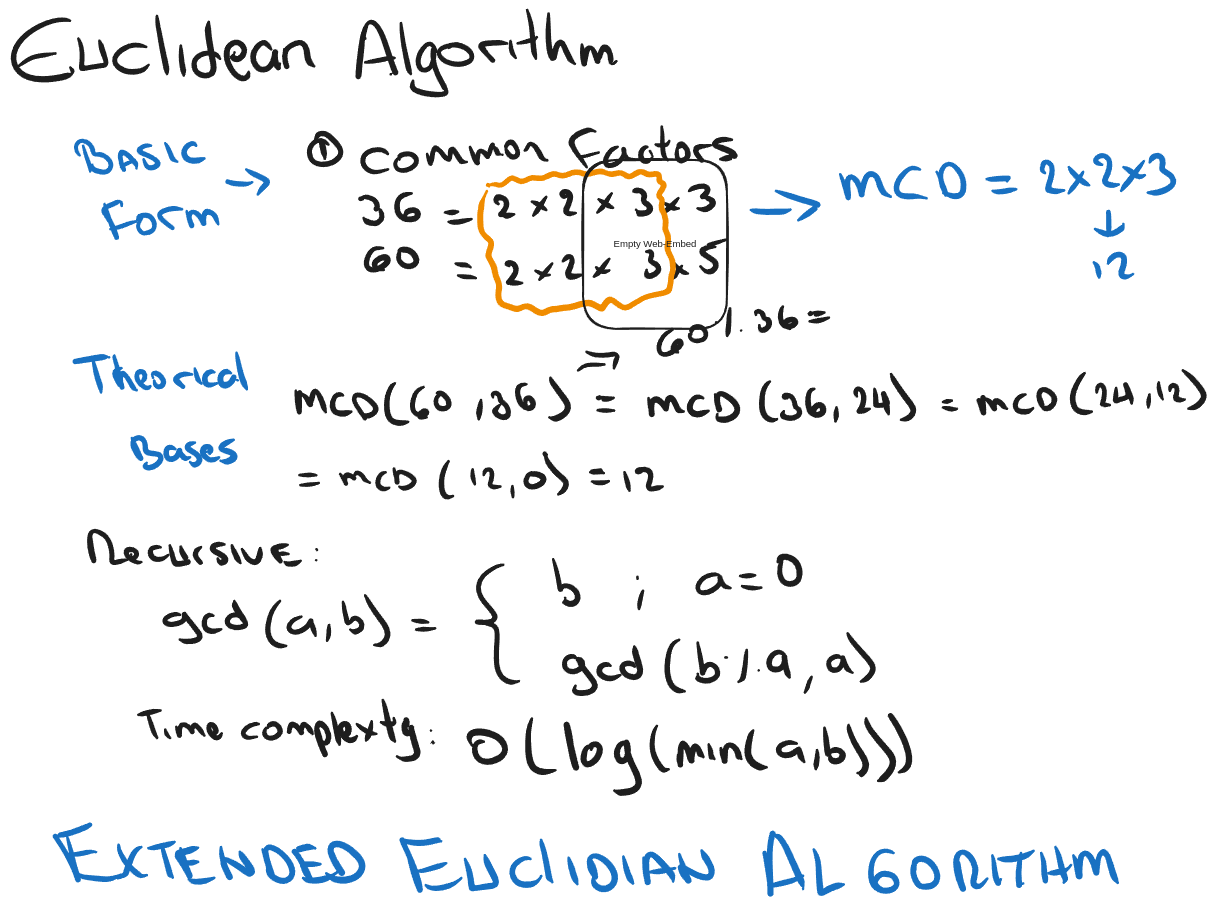 Euclidean Algorithm
BASIC Form → ① Common Factors
36 = 2 x 2 x 3 x 3 → MCD = 2x2x3
Empty Web-Embed
60 = 2 x 2 x 3 x 5 ↓ 12
⇒ 60 % 36 =
Theorical Bases
MCD(60,36) = MCD(36,24) = MCD(24,12)
= MCD(12,0) = 12
Recursive:
gcd(a,b) = { b ; a=0
gcd(b%a, a)
Time complexty: O(log(min(a,b)))
EXTENDED EUCLIDIAN ALGORITHM